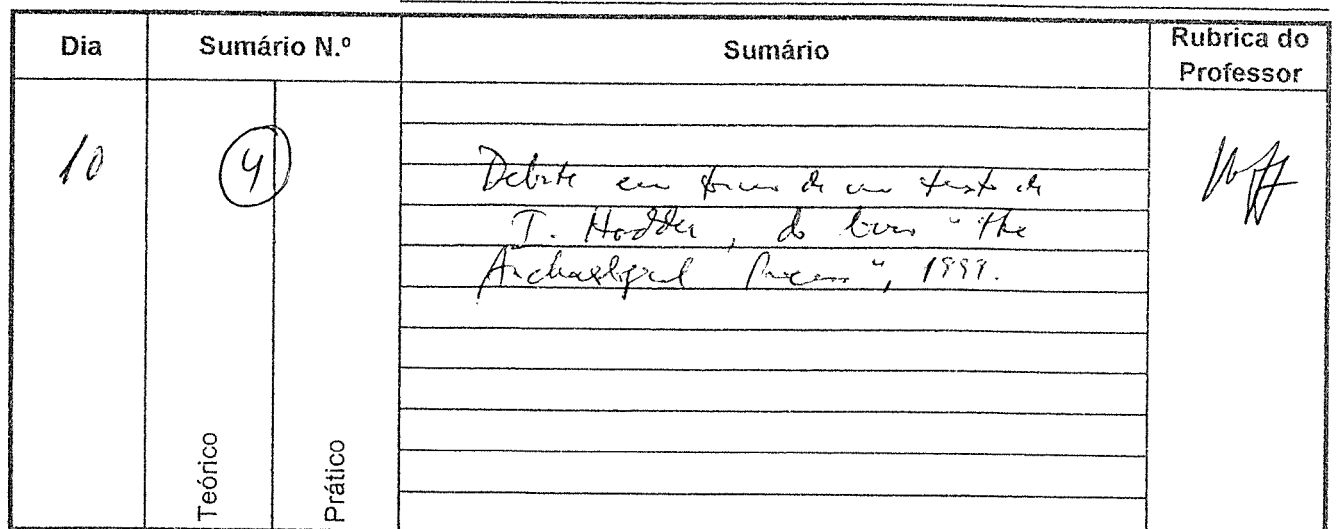 Dia
Sumário N.º
Sumário
Rubrica do
Professor
10
4
Debate em torno de um texto de
I. Hodder, do livro "The
Archaeological Process", 1999.
Teórico
Prático